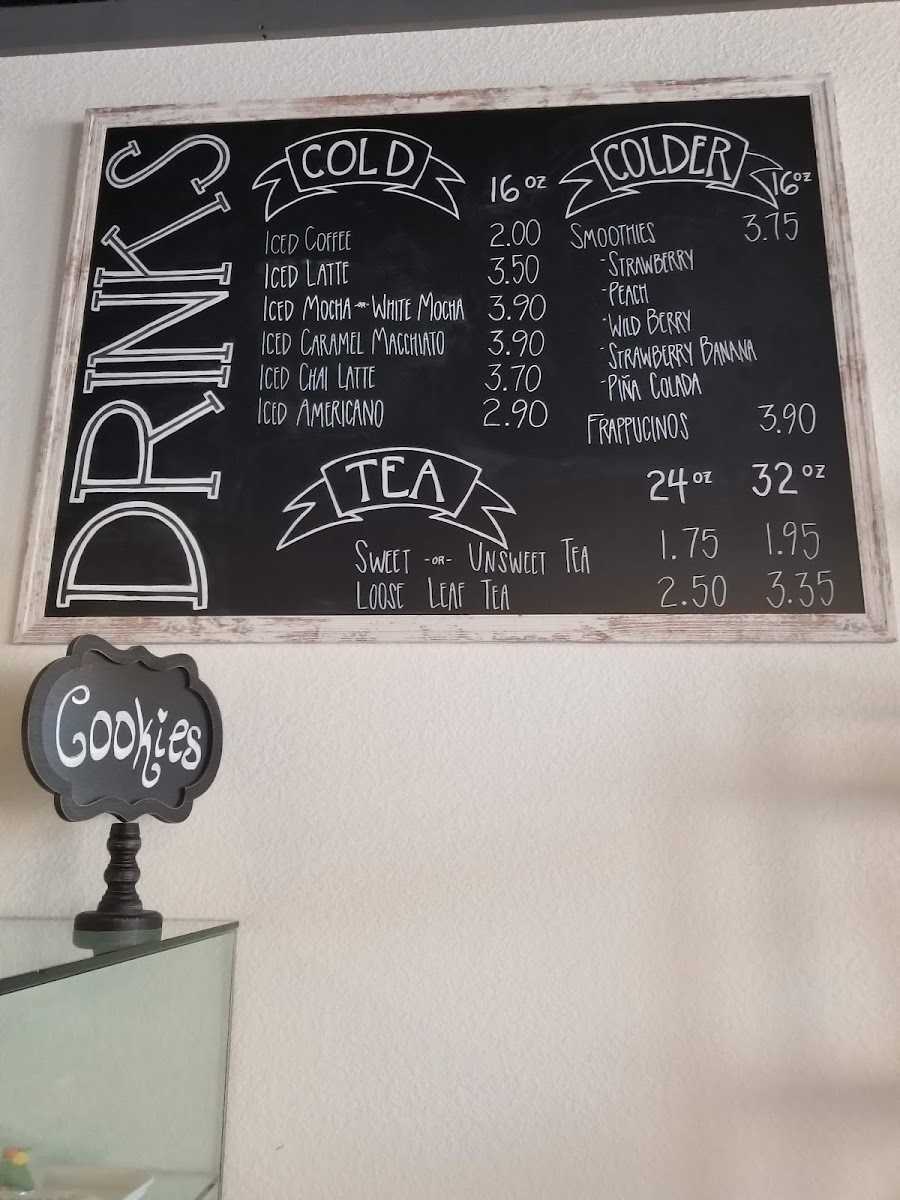 DRINKS
COLD
16 oz
Iced Coffee 2.00
Iced Latte 3.50
Iced Mocha -or- White Mocha 3.90
Iced Caramel Macchiato 3.90
Iced Chai Latte 3.70
Iced Americano 2.90
COLDER
16 oz
Smoothies 3.75
-Strawberry
-Peach
-Wild Berry
-Strawberry Banana
-Piña Colada
Frappucinos 3.90
TEA
24 oz 32 oz
Sweet -or- Unsweet Tea 1.75 1.95
Loose Leaf Tea 2.50 3.35
Cookies